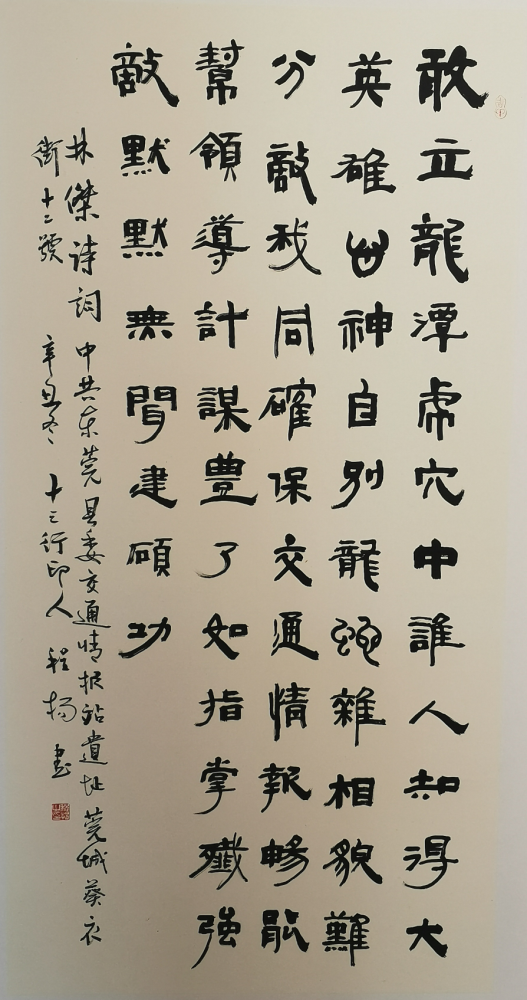 敢立龍潭虎穴中誰人知得大
英雄神自别龍蛇雜相貌難
分敵我同確保交通情報暢能
幫領導計謀豊了如指掌殲強
敵默默無聞建碩功
林傑诗詞 中共东莞县委交通情报站遺址 莞城葵衣
街十二號 辛丑冬 十三行印人 程揚 書